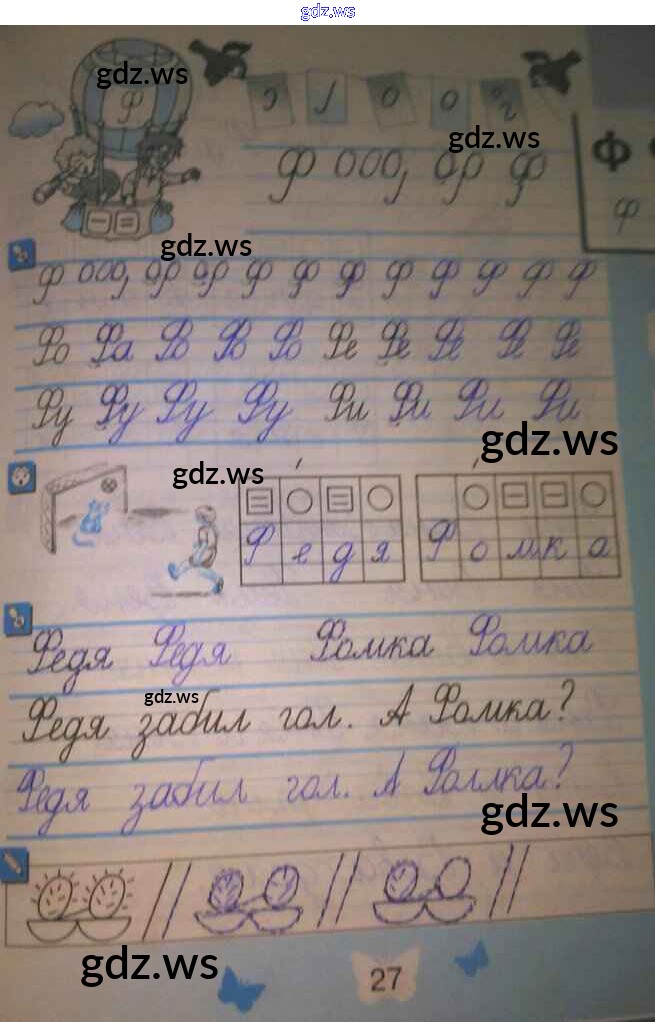 gdz.ws
gdz.ws
ф
gdz.ws
ф ооо, ор ф
Ф
ф
gdz.ws
ф ооо, ор ор ф ф ф ф ф ф ф ф
Фо Фа Фо Фо Фо Фе Фе Фе Фе Фе
Фу Фу Фу Фу Фи Фи Фи Фи
gdz.ws
gdz.ws
Ф е д я Ф о м к а
Федя Федя Фомка Фомка
gdz.ws
Федя забил гол. А Фомка?
Федя забил гол. А Фомка?
gdz.ws
gdz.ws
27